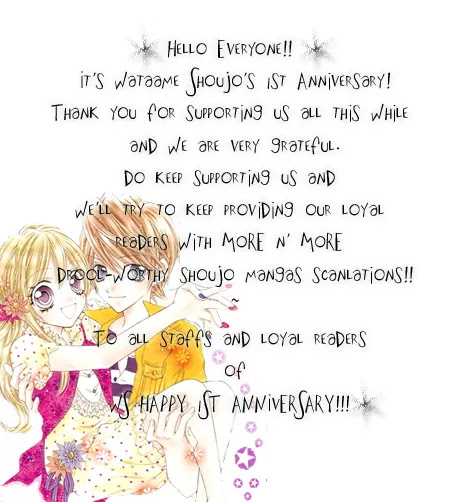 Hello Everyone!!
it's wataame Shoujo's 1st Anniversary!
Thank you for supporting us all this while
and we are very grateful.
Do keep supporting us and
we'll try to keep providing our loyal
readers with MORE N' MORE
DROOL-WORTHY shoujo mangas scanlations!!
~
To all staffs and loyal readers
of
WS HAPPY 1ST ANNIVERSARY!!!